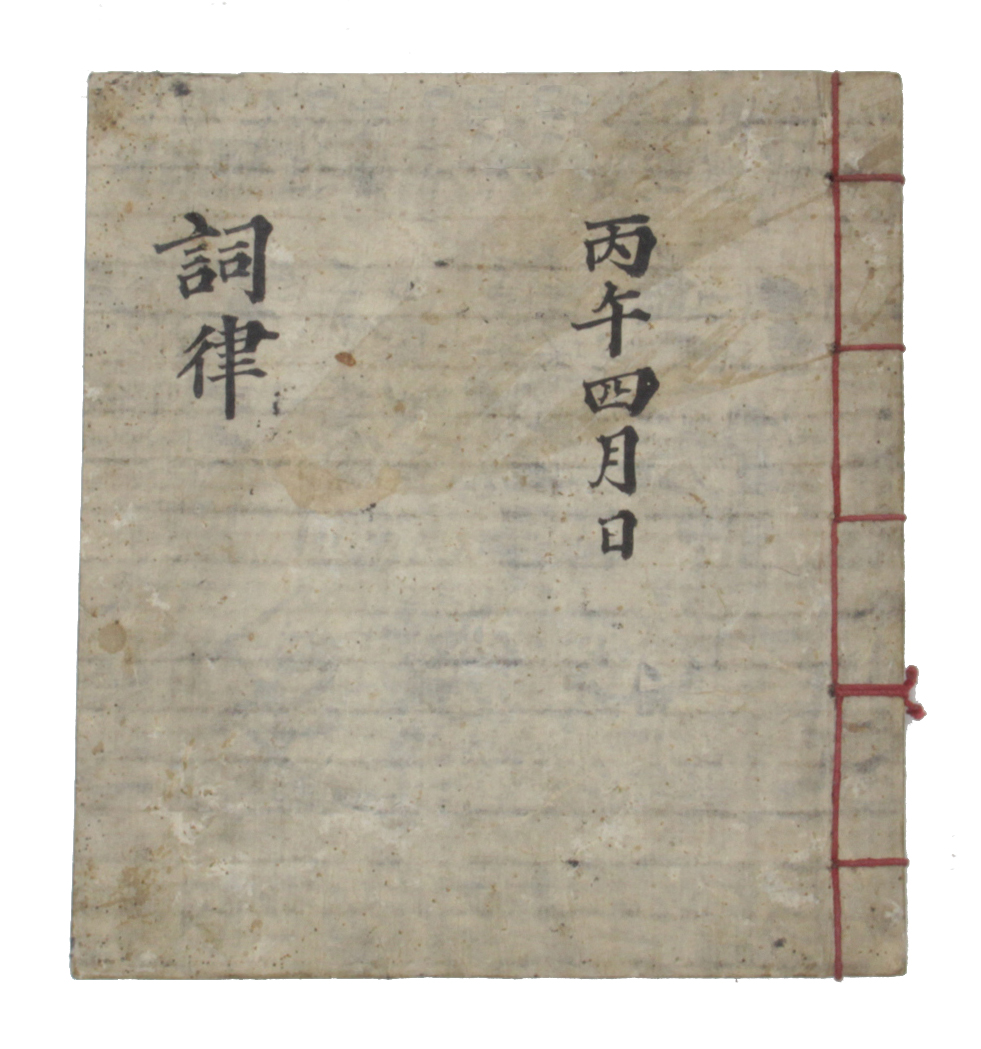 丙午四月日
詞律